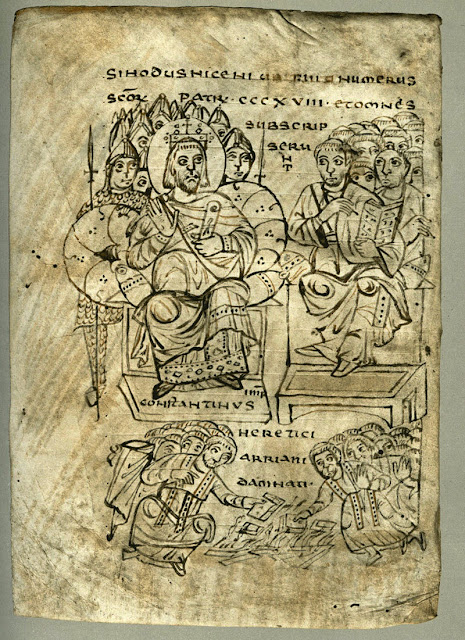 SINODUS NICENI NUMERUS
SCOR PATR · CCCXVIII · ET OMNES
SUBSCRIP
SERU
NT
IMP
CONSTANTINVS
HERETICI
ARRIANI
DAMNATI ·